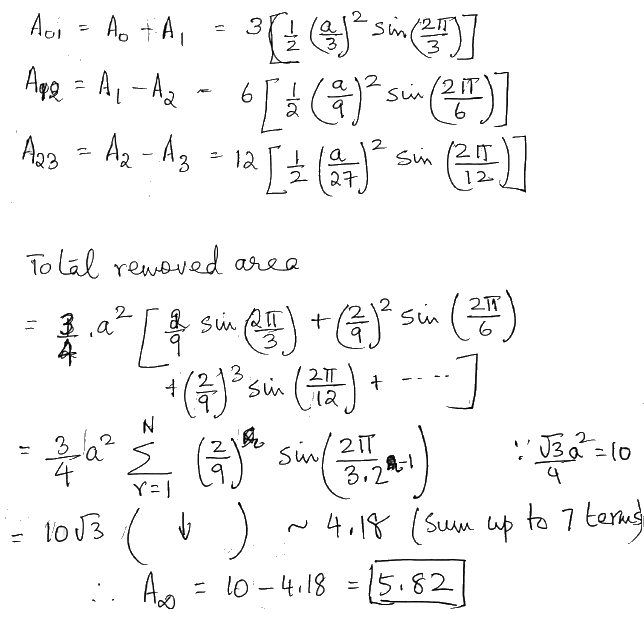 A₀₁ = A₀ + A₁ = 3[½ (a/3)² sin(2π/3)]
A₁₂ = A₁ - A₂ = 6[½ (a/9)² sin(2π/6)]
A₂₃ = A₂ - A₃ = 12[½ (a/27)² sin(2π/12)]
Total removed area
= 3/4 . a² [2/9 sin(2π/3) + (2/9)² sin(2π/6)
+ (2/9)³ sin(2π/12) + ----]
= 3/4 a² N Σ r=1 (2/9)ʳ sin(2π/3.2ʳ⁻¹) ∵ √3/4 a² = 10
= 10√3 ( ↓ ) ~ 4.18 (sum up to 7 terms)
∴ A∞ = 10 - 4.18 = 5.82